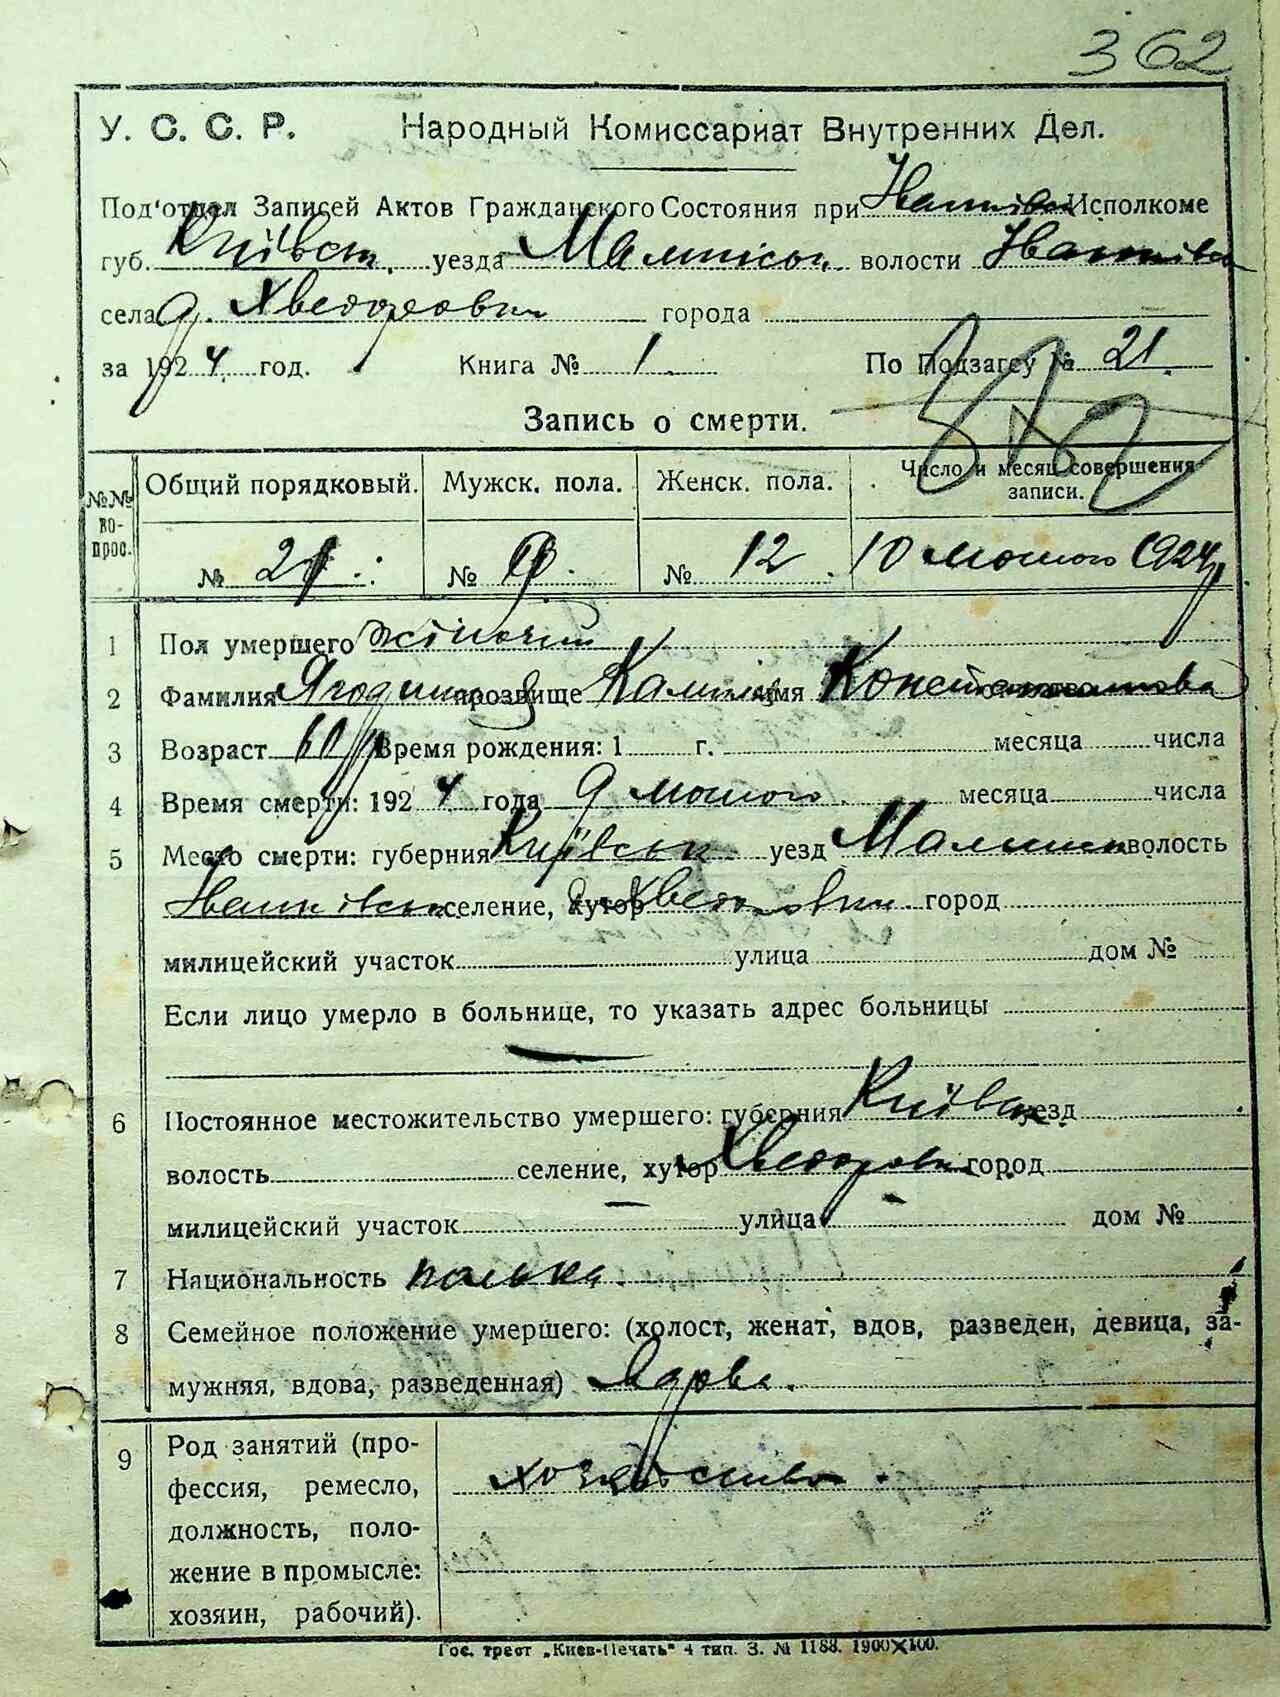 362
У. С. С. Р. Народный Комиссариат Внутренних Дел.
Под'отдел Записей Актов Гражданского Состояния при Исполкоме
губ. Київськ. уезда волости
села д. Хведоровки города
за 1924 год. Книга № 1. По Подзагсу № 21.
Запись о смерти.
№№ вопрос. Общий порядковый. Мужск. пола. Женск. пола. Число и месяц совершения записи.
№ 21. № 9. № 12. 10 лютого 1924
1 Пол умершего жіночий
2 Фамилия прозвище имя
3 Возраст 60 Время рождения: 1 г. месяца числа
4 Время смерти: 1924 года 9 лютого месяца числа
5 Место смерти: губерния Київськ уезд волость
селение, хутор Хведоровки город
милицейский участок улица дом №
Если лицо умерло в больнице, то указать адрес больницы
6 Постоянное местожительство умершего: губерния Київськ уезд
волость селение, хутор Хведоровка город
милицейский участок улица дом №
7 Национальность полька.
8 Семейное положение умершего: (холост, женат, вдов, разведен, девица, за-
мужняя, вдова, разведенная) Вдова.
9 Род занятий (про-
фессия, ремесло,
должность, поло-
жение в промысле:
хозяин, рабочий).
хозяйство.
Гос. трест „Киев-Печать" 4 тип. З. № 1188. 1900×100.